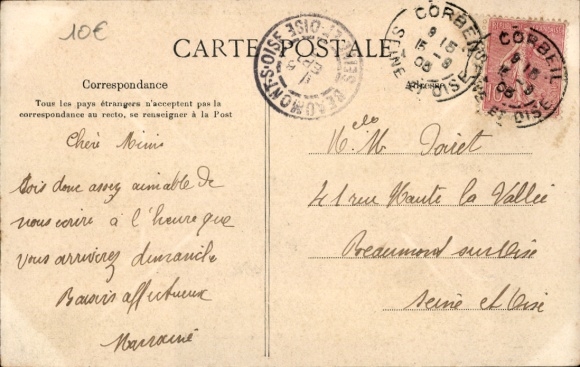 10€
CARTE POSTALE
Correspondance
Tous les pays étrangers n'acceptent pas la
correspondance au recto, se renseigner à la Post
Chère Mimi
Sois donc assez aimable de
nous écrire à l'heure que
vous arriverez dimanche
Baisers affectueux
Marraine
BEAUMONT-S-OISE
SEINE-ET-OISE
CORBEIL
9 15
15-9
05
SEINE ET OISE
CORBEIL
9 15
15-9
05
SEINE ET OISE
Melle M.
41 rue Haute la Vallée
Beaumond sur Oise
Seine et Oise